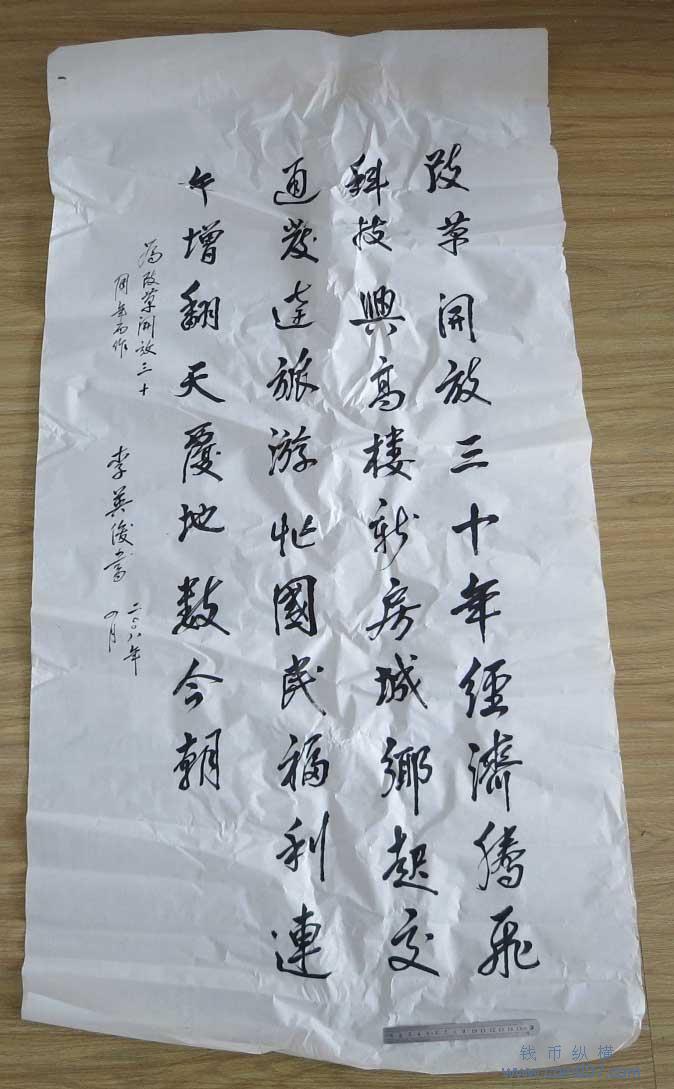 改革開放三十年經濟騰飛
科技興高楼新房城鄉起交
通发达旅游忙國民福利連
年增翻天覆地数今朝
為改革開放三十
周年而作
李英俊書
二〇〇八年
八月
钱币纵横